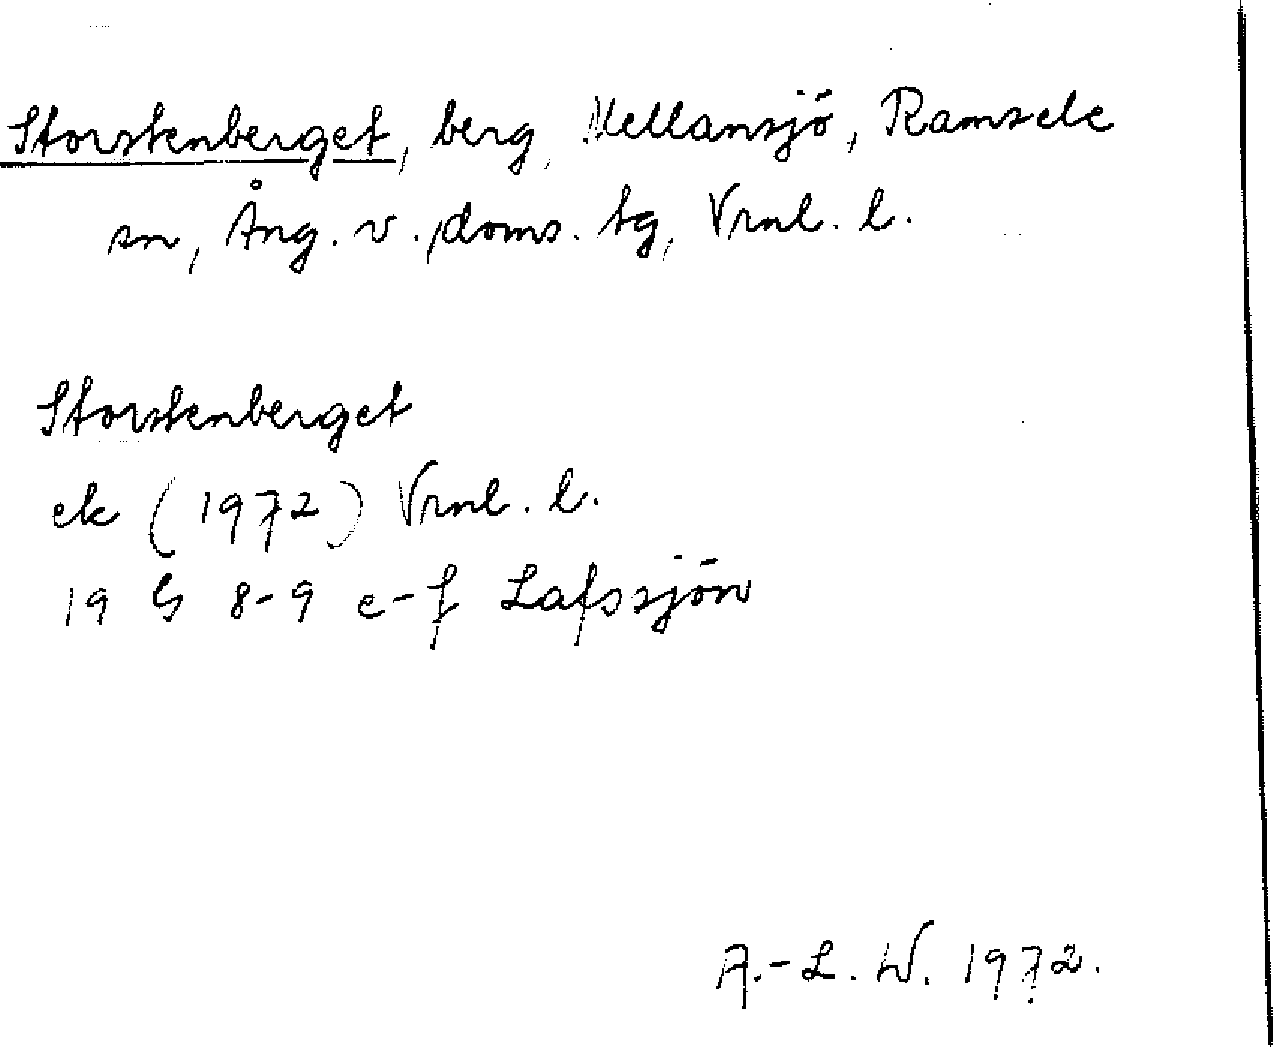 Storstenberget, berg, Mellansjö, Ramsele
sn, Ång. v. doms. tg, Vrnl. l.
Storstenberget
ek (1972) Vrnl. l.
19 G 8-9 e-f Lafssjön
A.-L. W. 1972.